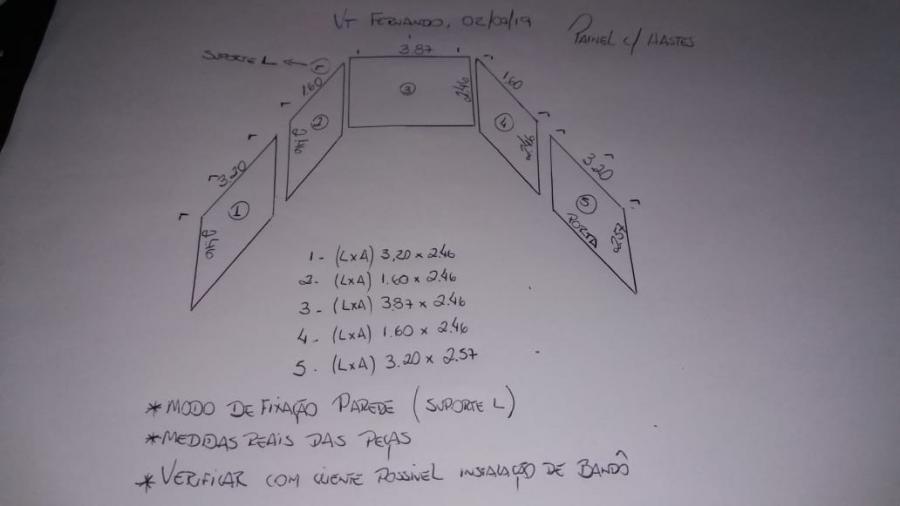 VT FERNANDO, 02/09/19
PAINEL C/ HASTES
SUPORTE L
1.60
3.87
3
2.46
1.60
2
2.46
4
2.46
3.20
1
2.46
3.20
5
PORTA
2.57
1 - (LxA) 3,20 x 2.46
2 - (LxA) 1.60 x 2.46
3 - (LxA) 3.87 x 2.46
4 - (LxA) 1.60 x 2.46
5 - (LxA) 3.20 x 2.57
* MODO DE FIXAÇÃO PAREDE (SUPORTE L)
* MEDIDAS REAIS DAS PEÇAS
* VERIFICAR COM CLIENTE POSSÍVEL INSTALAÇÃO DE BANDÔ